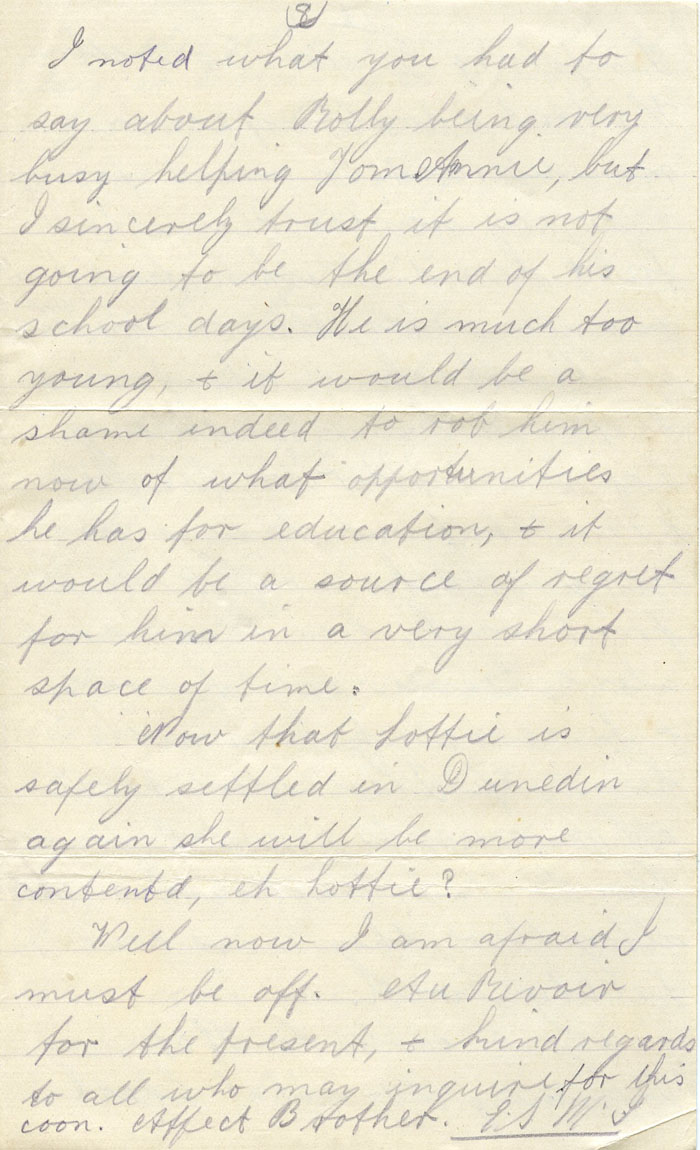 8
I noted what you had to
say about Rolly being very
busy helping Tom & Annie, but
I sincerely trust it is not
going to be the end of his
school days. He is much too
young, & it would be a
shame indeed to rob him
now of what opportunities
he has for education, & it
would be a source of regret
for him in a very short
space of time.
Now that Lottie is
safely settled in Dunedin
again she will be more
contentd, eh Lottie?
Well now I am afraid I
must be off. Au Revoir
for the present, & kind regards
to all who may inquire for this
coon. Affect Brother. E.S.M.